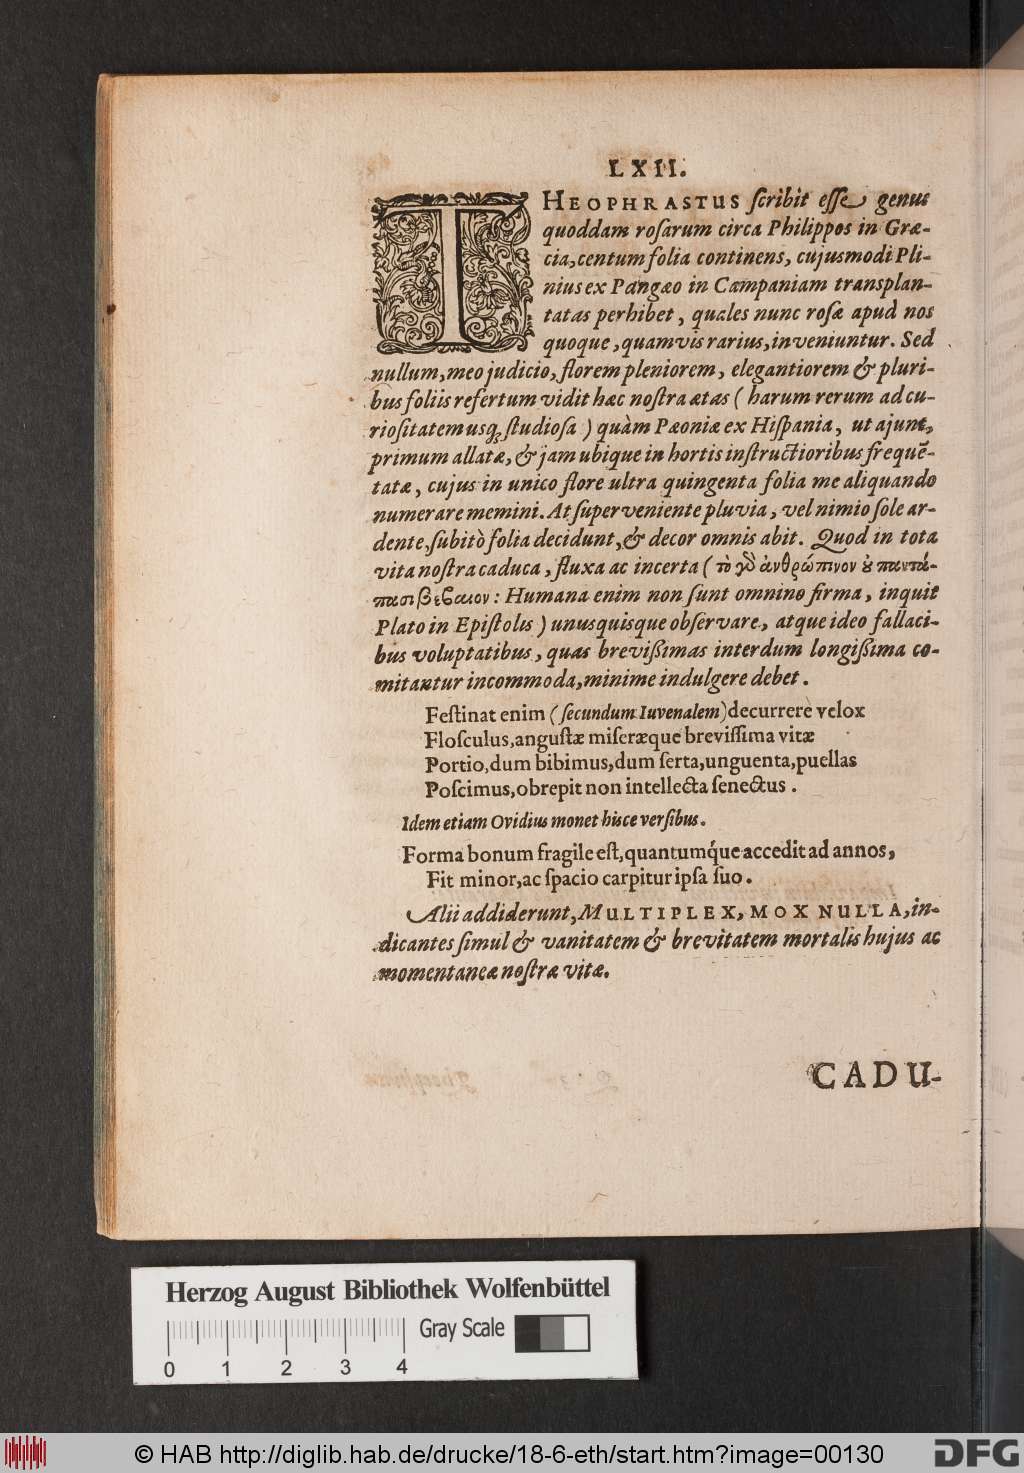 LXII.
THEOPHRASTUS ſcribit eſſe genus
quoddam roſarum circa Philippos in Græ-
cia, centum folia continens, cujusmodi Pli-
nius ex Pangæo in Campaniam transplan-
tatas perhibet, quales nunc roſæ apud nos
quoque, quamvis rarius, inveniuntur. Sed
nullum, meo judicio, florem pleniorem, elegantiorem & pluri-
bus foliis refertum vidit hæc noſtra ætas (harum rerum ad cu-
rioſitatem usq́; ſtudioſa) quàm Pæoniæ ex Hiſpania, ut ajunt,
primum allatæ, & jam ubique in hortis inſtructioribus frequẽ-
tatæ, cujus in unico flore ultra quingenta folia me aliquando
numerare memini. At ſuperveniente pluvia, vel nimio ſole ar-
dente, ſubitò folia decidunt, & decor omnis abit. Quod in tota
vita noſtra caduca, fluxa ac incerta (τὸ γὸ ἀνθρώπινον ȣ παντά-
πασι βεβαιον: Humana enim non ſunt omnino firma, inquit
Plato in Epiſtolis) unusquisque obſervare, atque ideo fallaci-
bus voluptatibus, quas breviſſimas interdum longiſſima co-
mitantur incommoda, minime indulgere debet.
Feſtinat enim (ſecundum Iuvenalem) decurrere velox
Floſculus, anguſtæ miſeræque breviſſima vitæ
Portio, dum bibimus, dum ſerta, unguenta, puellas
Poſcimus, obrepit non intellecta ſenectus.
Idem etiam Ovidius monet hisce verſibus.
Forma bonum fragile eſt, quantumq́ue accedit ad annos,
Fit minor, ac ſpacio carpitur ipſa ſuo.
Alii addiderunt, MULTIPLEX, MOX NULLA, in-
dicantes ſimul & vanitatem & brevitatem mortalis hujus ac
momentaneæ noſtræ vitæ.
CADU-
Herzog August Bibliothek Wolfenbüttel
Gray Scale
0 1 2 3 4
© HAB http://diglib.hab.de/drucke/18-6-eth/start.htm?image=00130
DFG